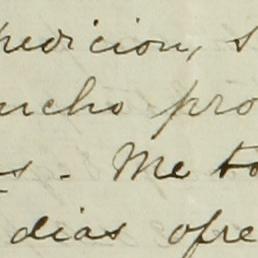 pedicion, s
ucho pro
s. Me to
dias ofre